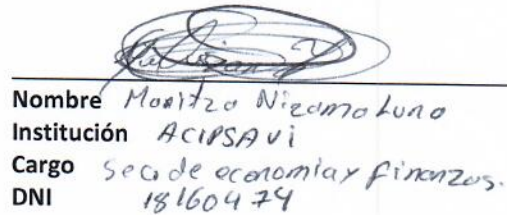 Nombre Maritza Nizama Luna
Institución ACIPSAVI
Cargo Seca de economia y finanzas.
DNI 18160474